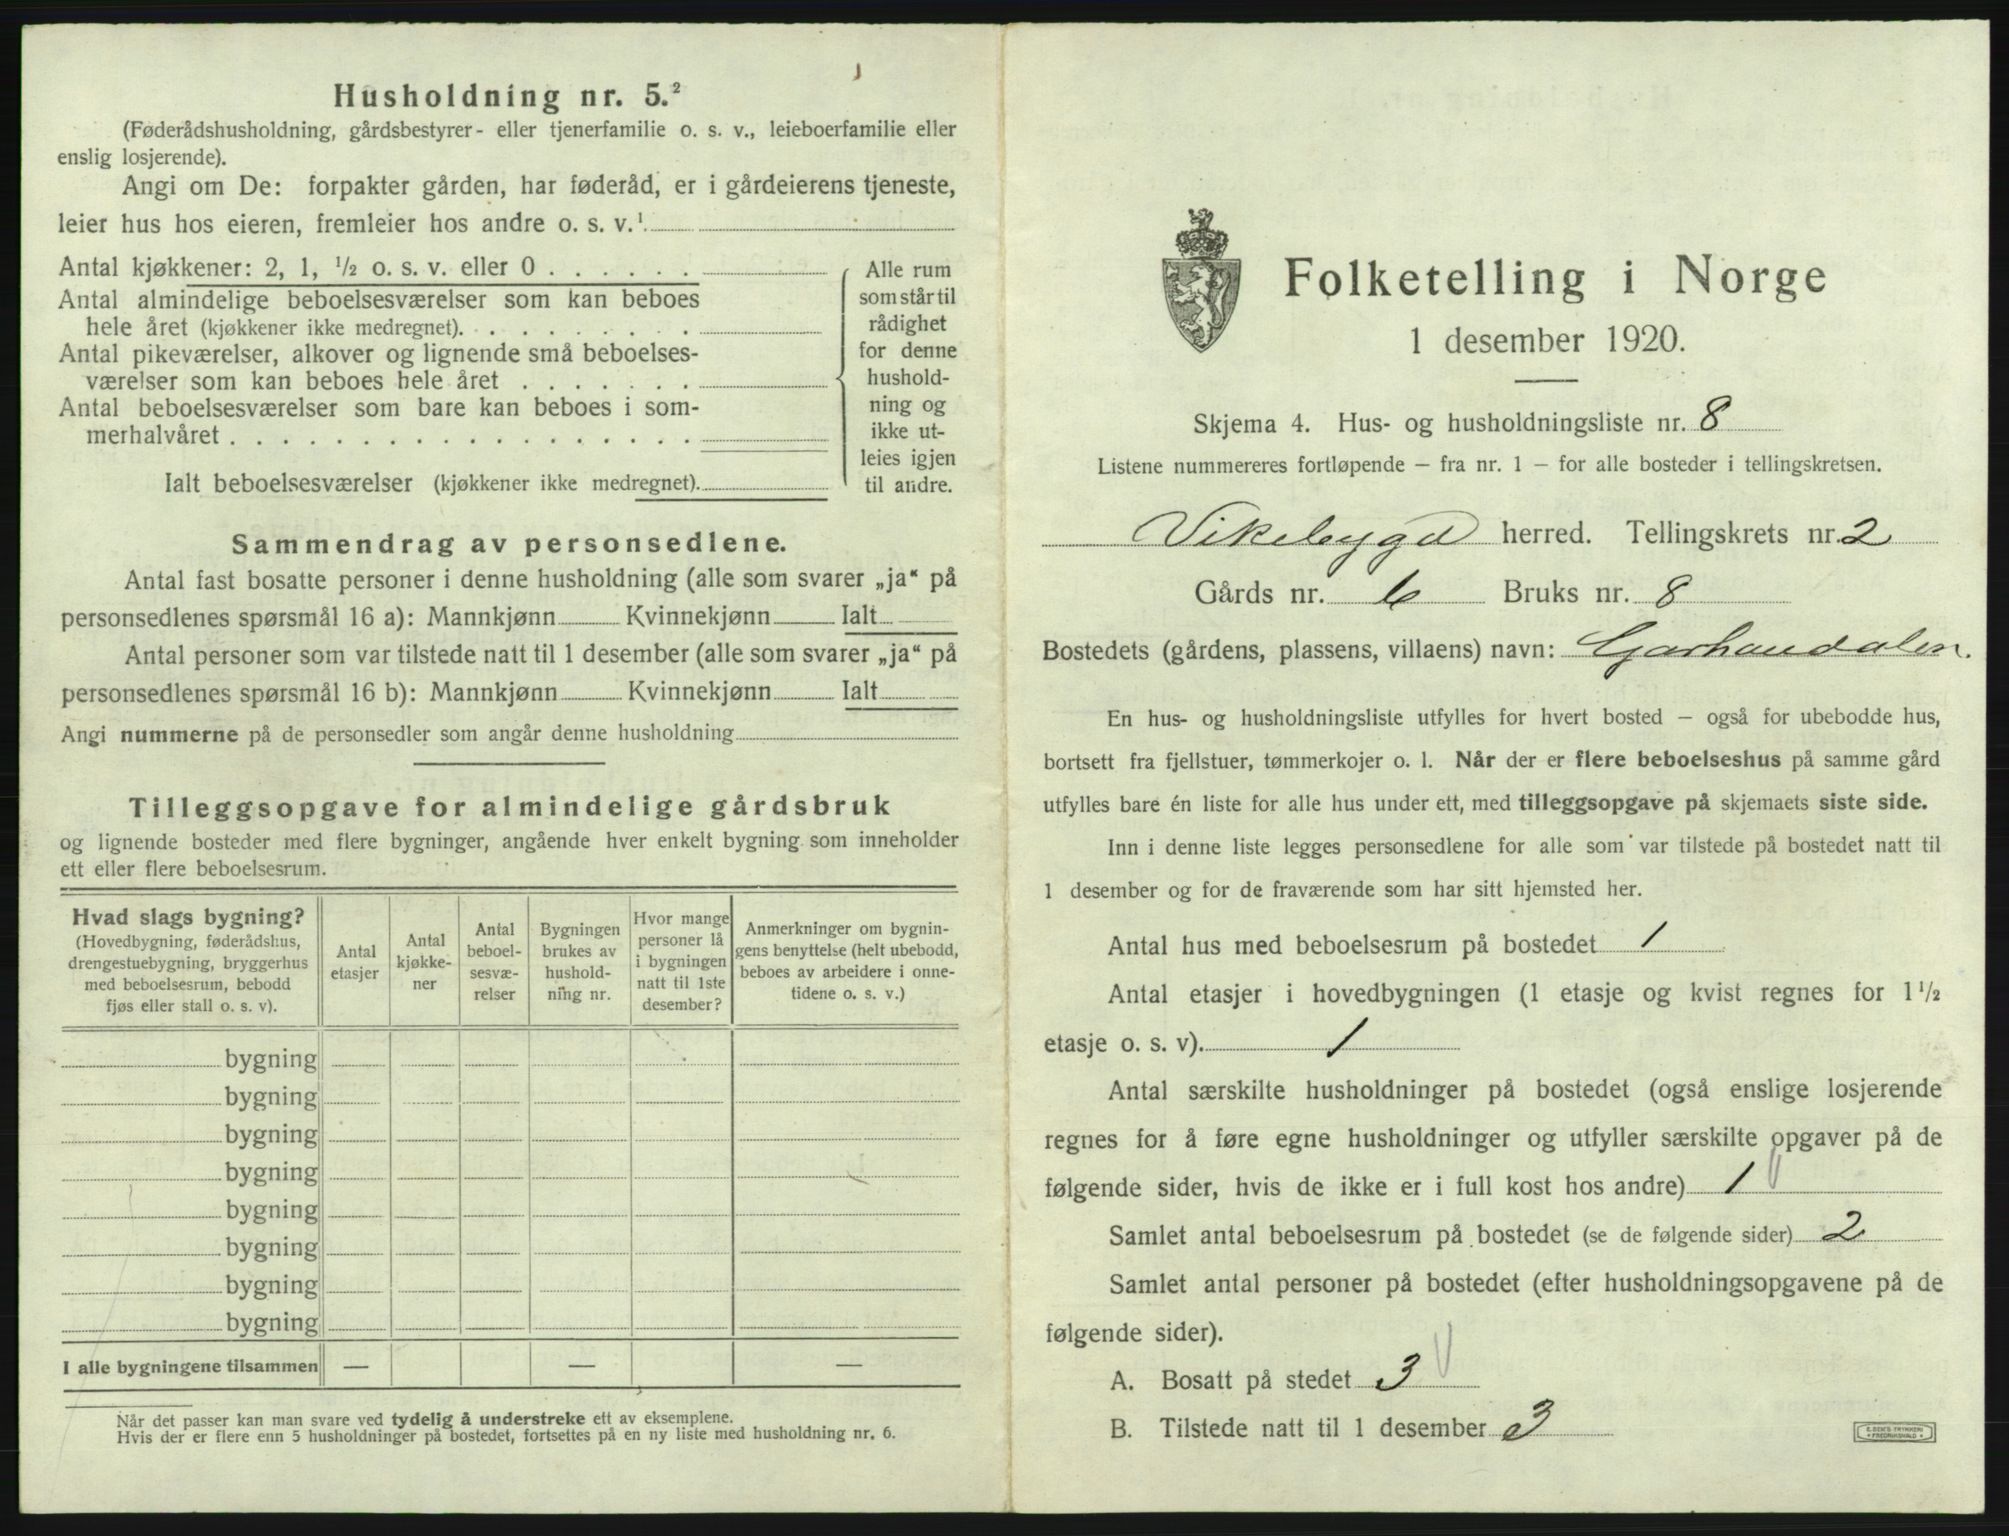 Husholdning nr. 5.²
(Føderådshusholdning, gårdsbestyrer- eller tjenerfamilie o. s. v., leieboerfamilie eller
enslig losjerende).
Angi om De: forpakter gården, har føderåd, er i gårdeierens tjeneste,
leier hus hos eieren, fremleier hos andre o. s. v.¹
Antal kjøkkener: 2, 1, ½ o. s. v. eller 0 . . . . . .
Antal almindelige beboelsesværelser som kan beboes
hele året (kjøkkener ikke medregnet). . . . . . . . .
Antal pikeværelser, alkover og lignende små beboelses-
værelser som kan beboes hele året . . . . . . .
Antal beboelsesværelser som bare kan beboes i som-
merhalvåret . . . . . . . . . . . . . . . . . .
Ialt beboelsesværelser (kjøkkener ikke medregnet).
Alle rum
som står til
rådighet
for denne
hushold-
ning og
ikke ut-
leies igjen
til andre.
Sammendrag av personsedlene.
Antal fast bosatte personer i denne husholdning (alle som svarer „ja“ på
personsedlenes spørsmål 16 a): Mannkjønn Kvinnekjønn Ialt
Antal personer som var tilstede natt til 1 desember (alle som svarer „ja“ på
personsedlenes spørsmål 16 b): Mannkjønn Kvinnekjønn Ialt
Angi nummerne på de personsedler som angår denne husholdning
Tilleggsopgave for almindelige gårdsbruk
og lignende bosteder med flere bygninger, angående hver enkelt bygning som inneholder
ett eller flere beboelsesrum.
Hvad slags bygning?
(Hovedbygning, føderådshus,
drengestuebygning, bryggerhus
med beboelsesrum, bebodd
fjøs eller stall o. s. v).
Antal
etasjer
Antal
kjøkke-
ner
Antal
beboel-
sesvæ-
relser
Bygningen
brukes av
hushold-
ning nr.
Hvor mange
personer lå
i bygningen
natt til 1ste
desember?
Anmerkninger om bygnin-
gens benyttelse (helt ubebodd,
beboes av arbeidere i onne-
tidene o. s. v.)
bygning
bygning
bygning
bygning
bygning
bygning
bygning
bygning
I alle bygningene tilsammen — — —
Når det passer kan man svare ved tydelig å understreke ett av eksemplene.
Hvis der er flere enn 5 husholdninger på bostedet, fortsettes på en ny liste med husholdning nr. 6.
Folketelling i Norge
1 desember 1920.
Skjema 4. Hus- og husholdningsliste nr. 8
Listene nummereres fortløpende — fra nr. 1 — for alle bosteder i tellingskretsen.
Vikebygd herred. Tellingskrets nr. 2
Gårds nr. 6 Bruks nr. 8
Bostedets (gårdens, plassens, villaens) navn: Garhaudalen.
En hus- og husholdningsliste utfylles for hvert bosted — også for ubebodde hus,
bortsett fra fjellstuer, tømmerkojer o. l. Når der er flere beboelseshus på samme gård
utfylles bare én liste for alle hus under ett, med tilleggsopgave på skjemaets siste side.
Inn i denne liste legges personsedlene for alle som var tilstede på bostedet natt til
1 desember og for de fraværende som har sitt hjemsted her.
Antal hus med beboelsesrum på bostedet 1
Antal etasjer i hovedbygningen (1 etasje og kvist regnes for 1½
etasje o. s. v). 1
Antal særskilte husholdninger på bostedet (også enslige losjerende
regnes for å føre egne husholdninger og utfyller særskilte opgaver på de
følgende sider, hvis de ikke er i full kost hos andre) 1
Samlet antal beboelsesrum på bostedet (se de følgende sider) 2
Samlet antal personer på bostedet (efter husholdningsopgavene på de
følgende sider).
A. Bosatt på stedet 3
B. Tilstede natt til 1 desember 3